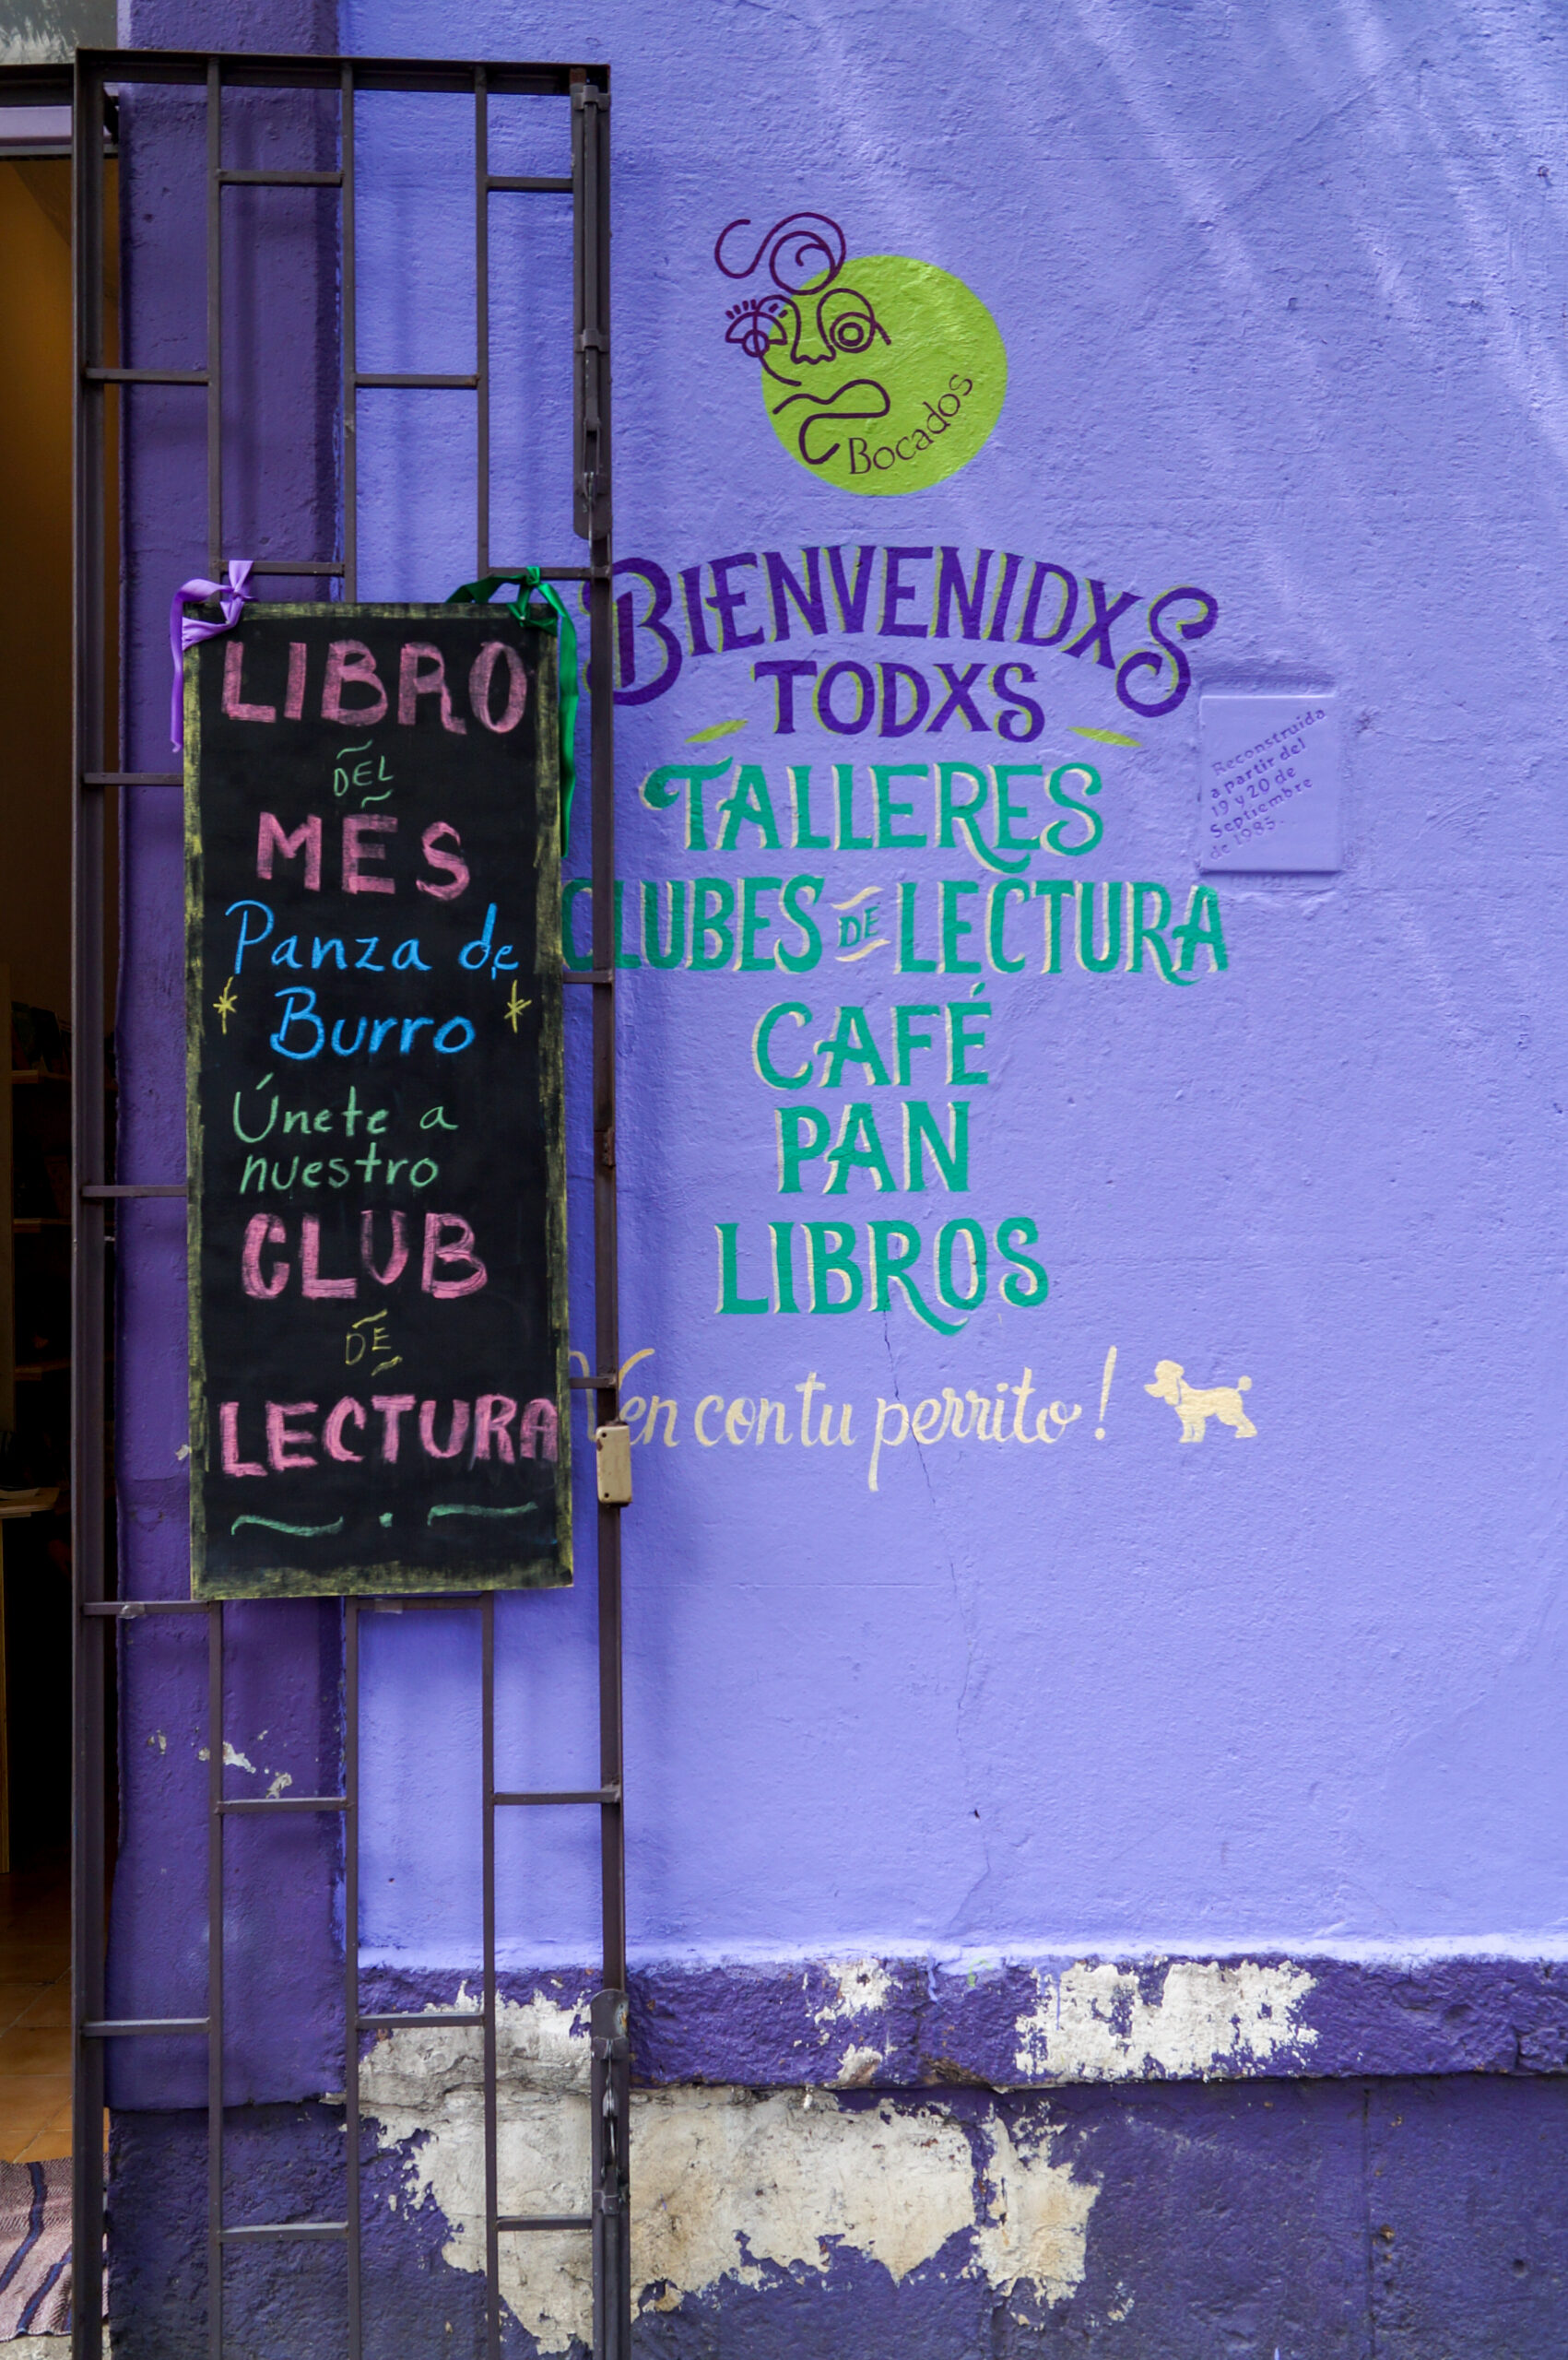 LIBRO
DEL
MES
Panza de
Burro
Únete a
nuestro
CLUB
DE
LECTURA
Bocados
BIENVENIDXS
TODXS
TALLERES
CLUBES DE LECTURA
CAFÉ
PAN
LIBROS
Ven con tu perrito!
Reconstruida
a partir del
19 y 20 de
Septiembre
de 1985.